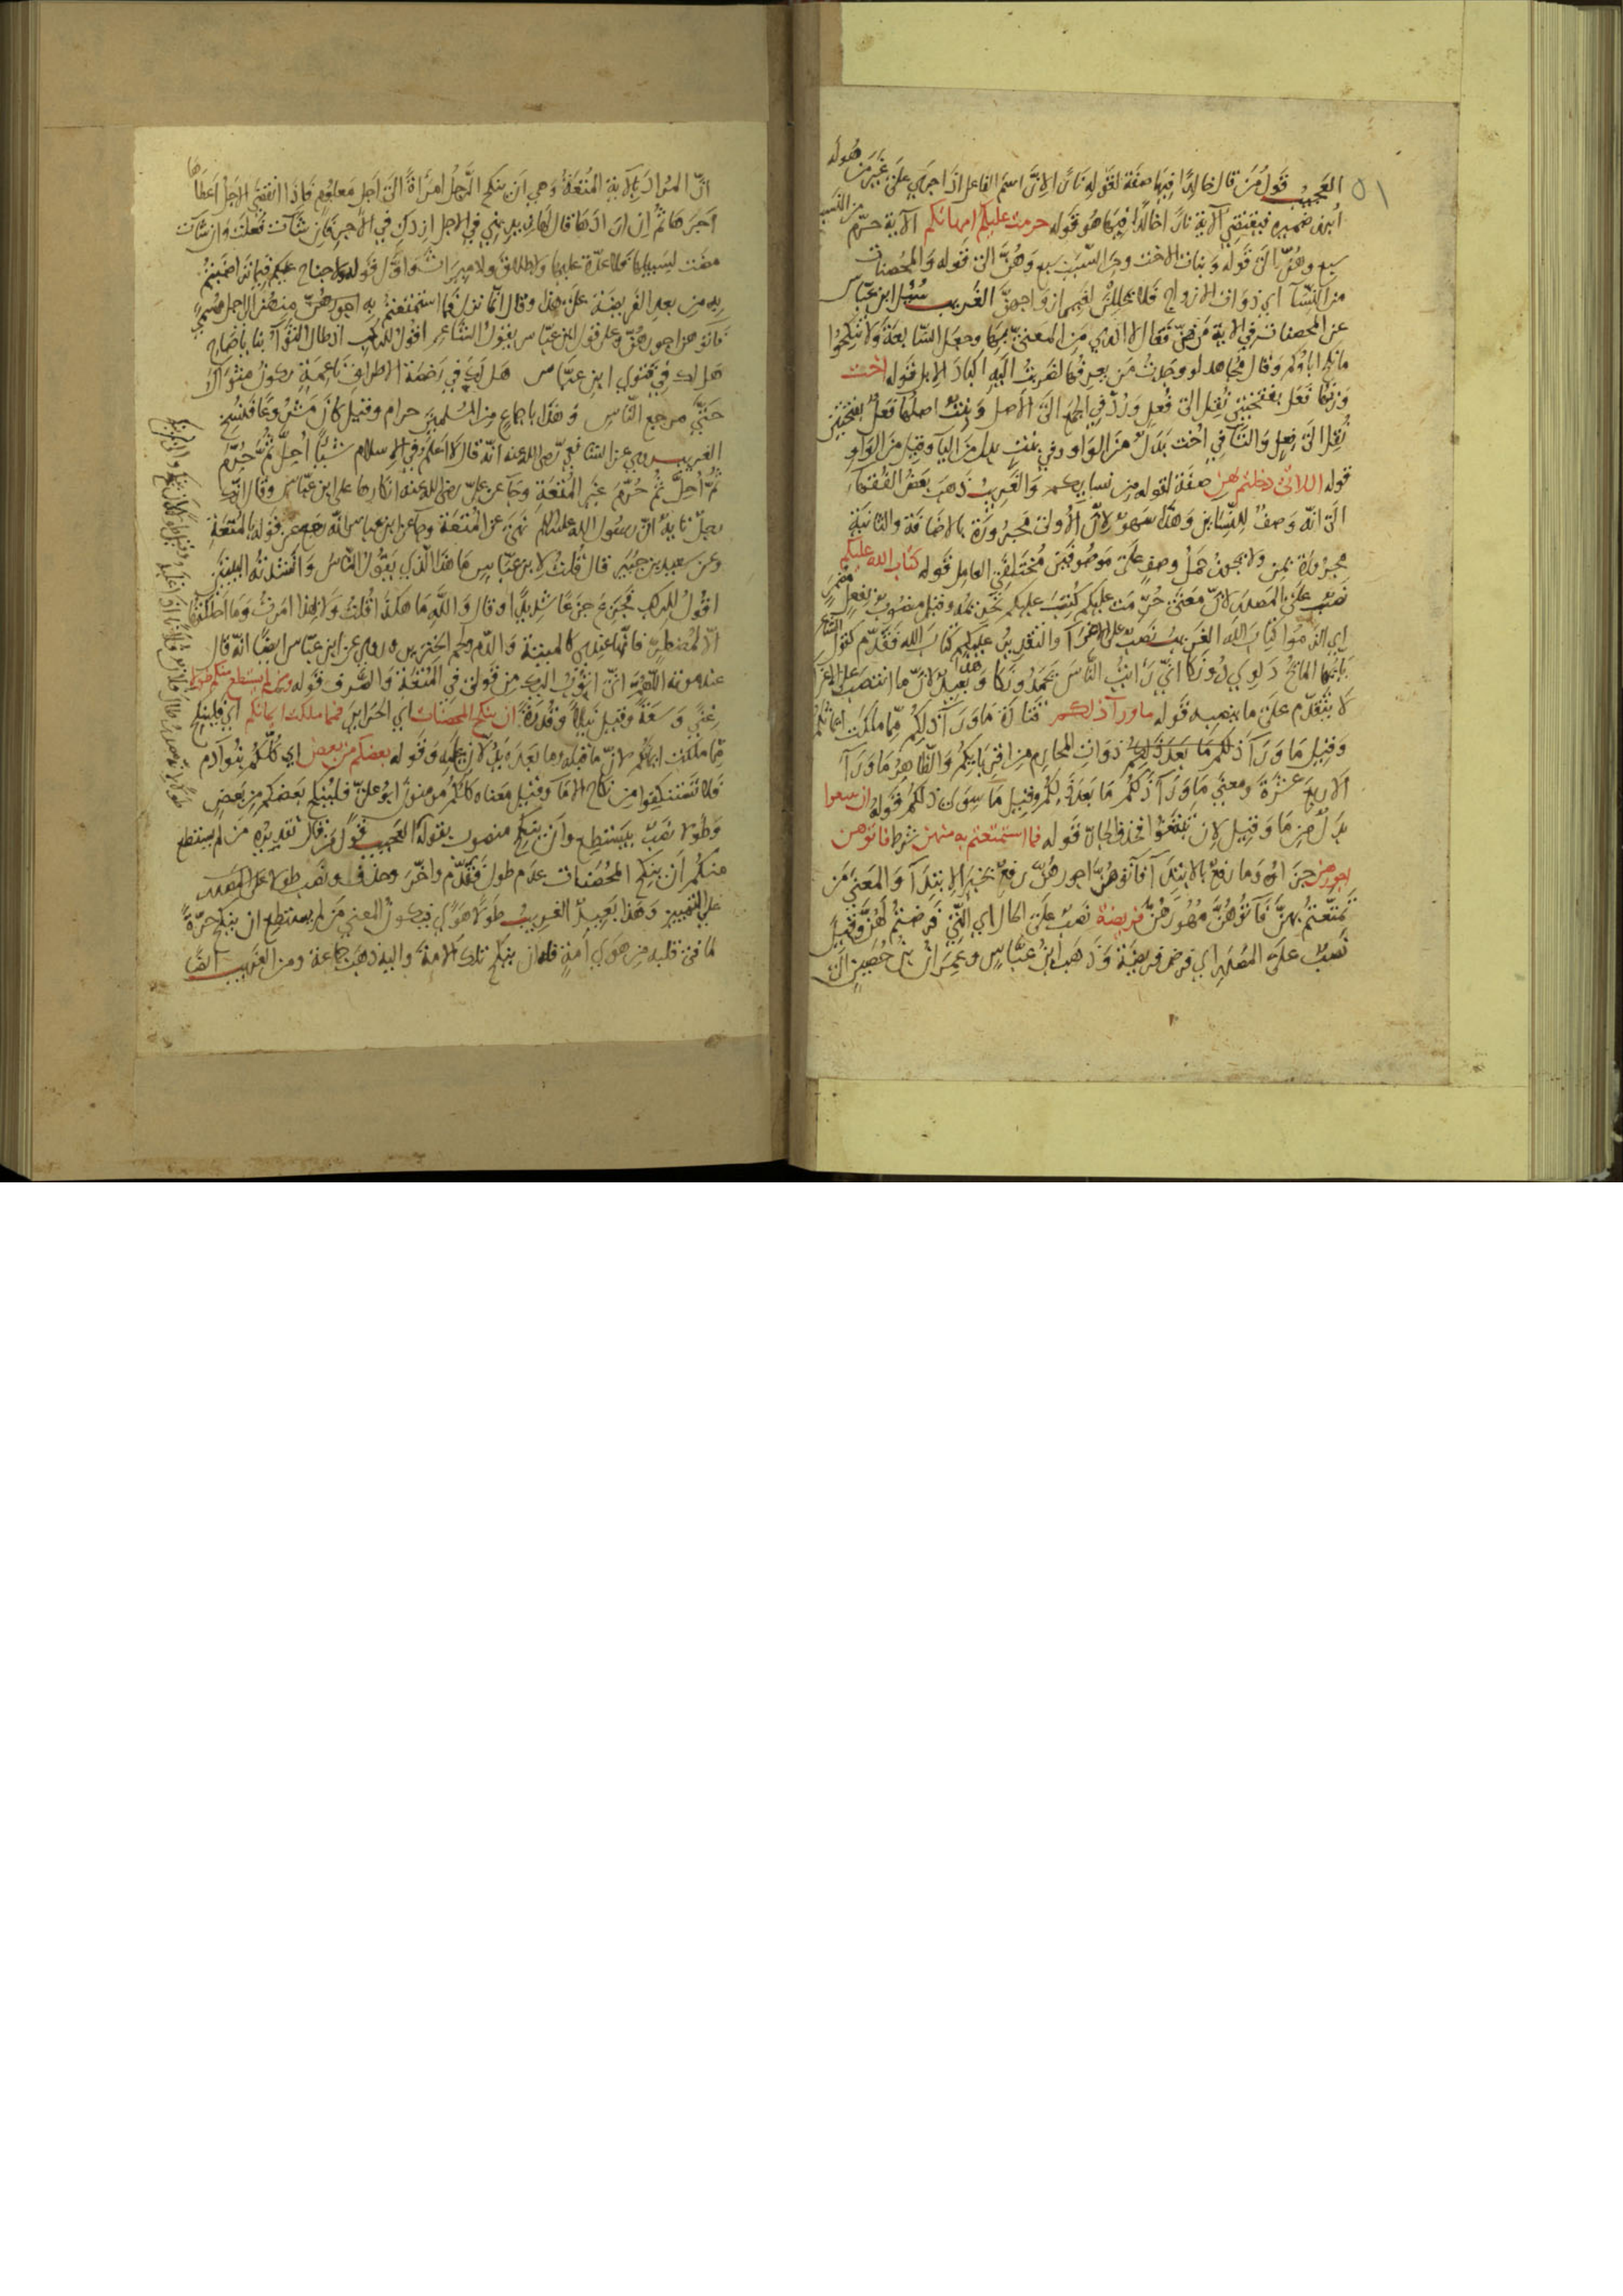 ٥١
العجيب قول من قال خالدا فيها صفة لقوله نارا لان اسم الفاعل اذا اجري على غير من هو له
ابرز ضميره فيقتضي الاية نارا خالدا فيها هو قوله حرمت عليكم امهاتكم الاية حرم من النسب
سبع وهن الى قوله وبنات الاخت ومن السبب سبع وهن الى قوله والمحصنات
من النسآ اي ذوات الازواج فلا يحللن لغير ازواجهن الغريب سئل ابن عباس
عن المحصنات في الاية من هن فقال لا ادري من المعني بها وجعل السابعة ولا تنكحوا
ما نكح اباؤكم وقال مجاهد لو وجدت من يعرفها لضربت اليه اكباد الابل قوله اخت
وزنها فعل بفتحتين نقل الى فعل ورد في الجمع الى الاصل وبنت اصلها فعل بفتحتين
نقل الى فعل والتآ في اخت بدل من الواو وفي بنت بدل من اليآ وقيل من الواو
قوله اللاتي دخلتم بهن صفة لقوله من نسايكم والغريب ذهب بعض الفقهآ
الى انه وصف للنساين وهذا سهو لان الاولى مجرورة بالاضافة والثانية
مجرورة بمن ولا يجوز حمل وصف على موصوفين مختلفي العامل قوله كتاب الله عليكم
نصب على المصدر لان معنى حرمت عليكم كتب عليكم تحريمه وقيل منصوب بفعل مضمر
اي الزموا كتاب الله الغريب نصب على الاغرآ والتقدير عليكم كتاب الله فقدم كقول الشاعر
يا ايها المائح دلوي دونكا اني رايت الناس يحمدونكا وهذا بعيد لان ما انتصب على الاغرآ
لا يتقدم على ما ينصبه قوله ما ورآ ذلكم قتادة ما ورآ ذلكم مما ملكت ايمانكم
وقيل ما ورآ ذلكم ما بعد ذلكم ذوات المحارم من اقربايكم والظاهر ما ورآ
الاربع عشرة ومعنى ما ورآ ذلكم ما بعد ذلكم وقيل ما سوى ذلكم قوله ان تبتغوا
بدل من ما وقيل لان تبتغوا فحذف الجار قوله فما استمتعتم به منهن شرط فاتوهن
اجورهن جزاؤه وما رفع بالابتدآ فآتوهن اجورهن رفع بخبر الابتدآ والمعنى من
تمتعتم بهن فآتوهن مهورهن فريضة نصب على الحال اي التي فرضتم لهن وقيل
نصب على المصدر اي فرض فريضة وذهب ابن عباس وعمران بن حصين الى
ان المراد بالاية المتعة وهي ان ينكح الرجل امراة الى اجل معلوم فاذا انقضى الاجل اعطاها
اجرها ثم ان ارادها قال لها زيديني في الاجل ازدك في الاجر فان شآت فعلت وان شآت
مضت لسبيلها فلا عدة عليها ولا طلاق ولا ميراث واول قوله ولا جناح عليكم فيما تراضيتم
به من بعد الفريضة على هذا وقال انما نزل فما استمتعتم به منهن الى اجل مسمى
فآتوهن اجورهن وعلى قول ابن عباس يقول الشاعر اقول للركب اذ طال الثوآ بنا يا صاح
هل لك في فتوى ابن عباس هل لك في رخصة الاطراف ناعمة تكون مثواك
حتى مرجع الناس وهذا باجماع من المسلمين حرام وقيل كان مشروعا فنسخ
الغريب روي عن الشافعي رضي الله عنه انه قال لا اعلم في الاسلام شيئا احل ثم حرم
ثم احل ثم حرم غير المتعة وجآ عن علي رضي الله عنه انكارها على ابن عباس وقال انك
رجل تايه ان رسول الله عليه السلام نهى عن المتعة وجآ عن ابن عباس انه رجع عن قوله بالمتعة
وعن سعيد بن جبير قال قلت لابن عباس ما هذا الذي يقول الناس وانشدته البيتين
اقول للركب فجزع جزعا شديدا وقال والله ما هكذا قلت ولا بهذا امرت وما احلتها
الا لمضطر فانها عندي كالميتة والدم ولحم الخنزير وروي عن ابن عباس ايضا انه قال
عند موته اللهم اني اتوب اليك من قولي في المتعة والصرف قوله ومن لم يستطع منكم طولا
غنى وسعة وقيل نيلا وقدرة ان ينكح المحصنات اي الحراير فمما ملكت ايمانكم اي فلينكح
مما ملكت ايمانكم لان ما قبله وما بعده يدلان عليه وقوله بعضكم من بعض اي كلكم بنو ادم
فلا تستنكفوا من نكاح الاما وقيل معناه كلكم مومنون ابو علي فلينكح بعضكم من بعض
وطولا نصب بيستطع وان ينكح منصوب بقوله العجيب قول من قال تقديره من لم يستطع
منكم ان ينكح المحصنات عدم طول فقدم واخر وحذف ونصب طولا على المصدر
على التمييز وهذا بعيد الغريب طولا هوى فيكون المعنى من لم يستطع ان ينكح حرة
لما في قلبه من هوى امة فله ان ينكح تلك الامة واليه ذهب جماعة ومن الغريب ايضا